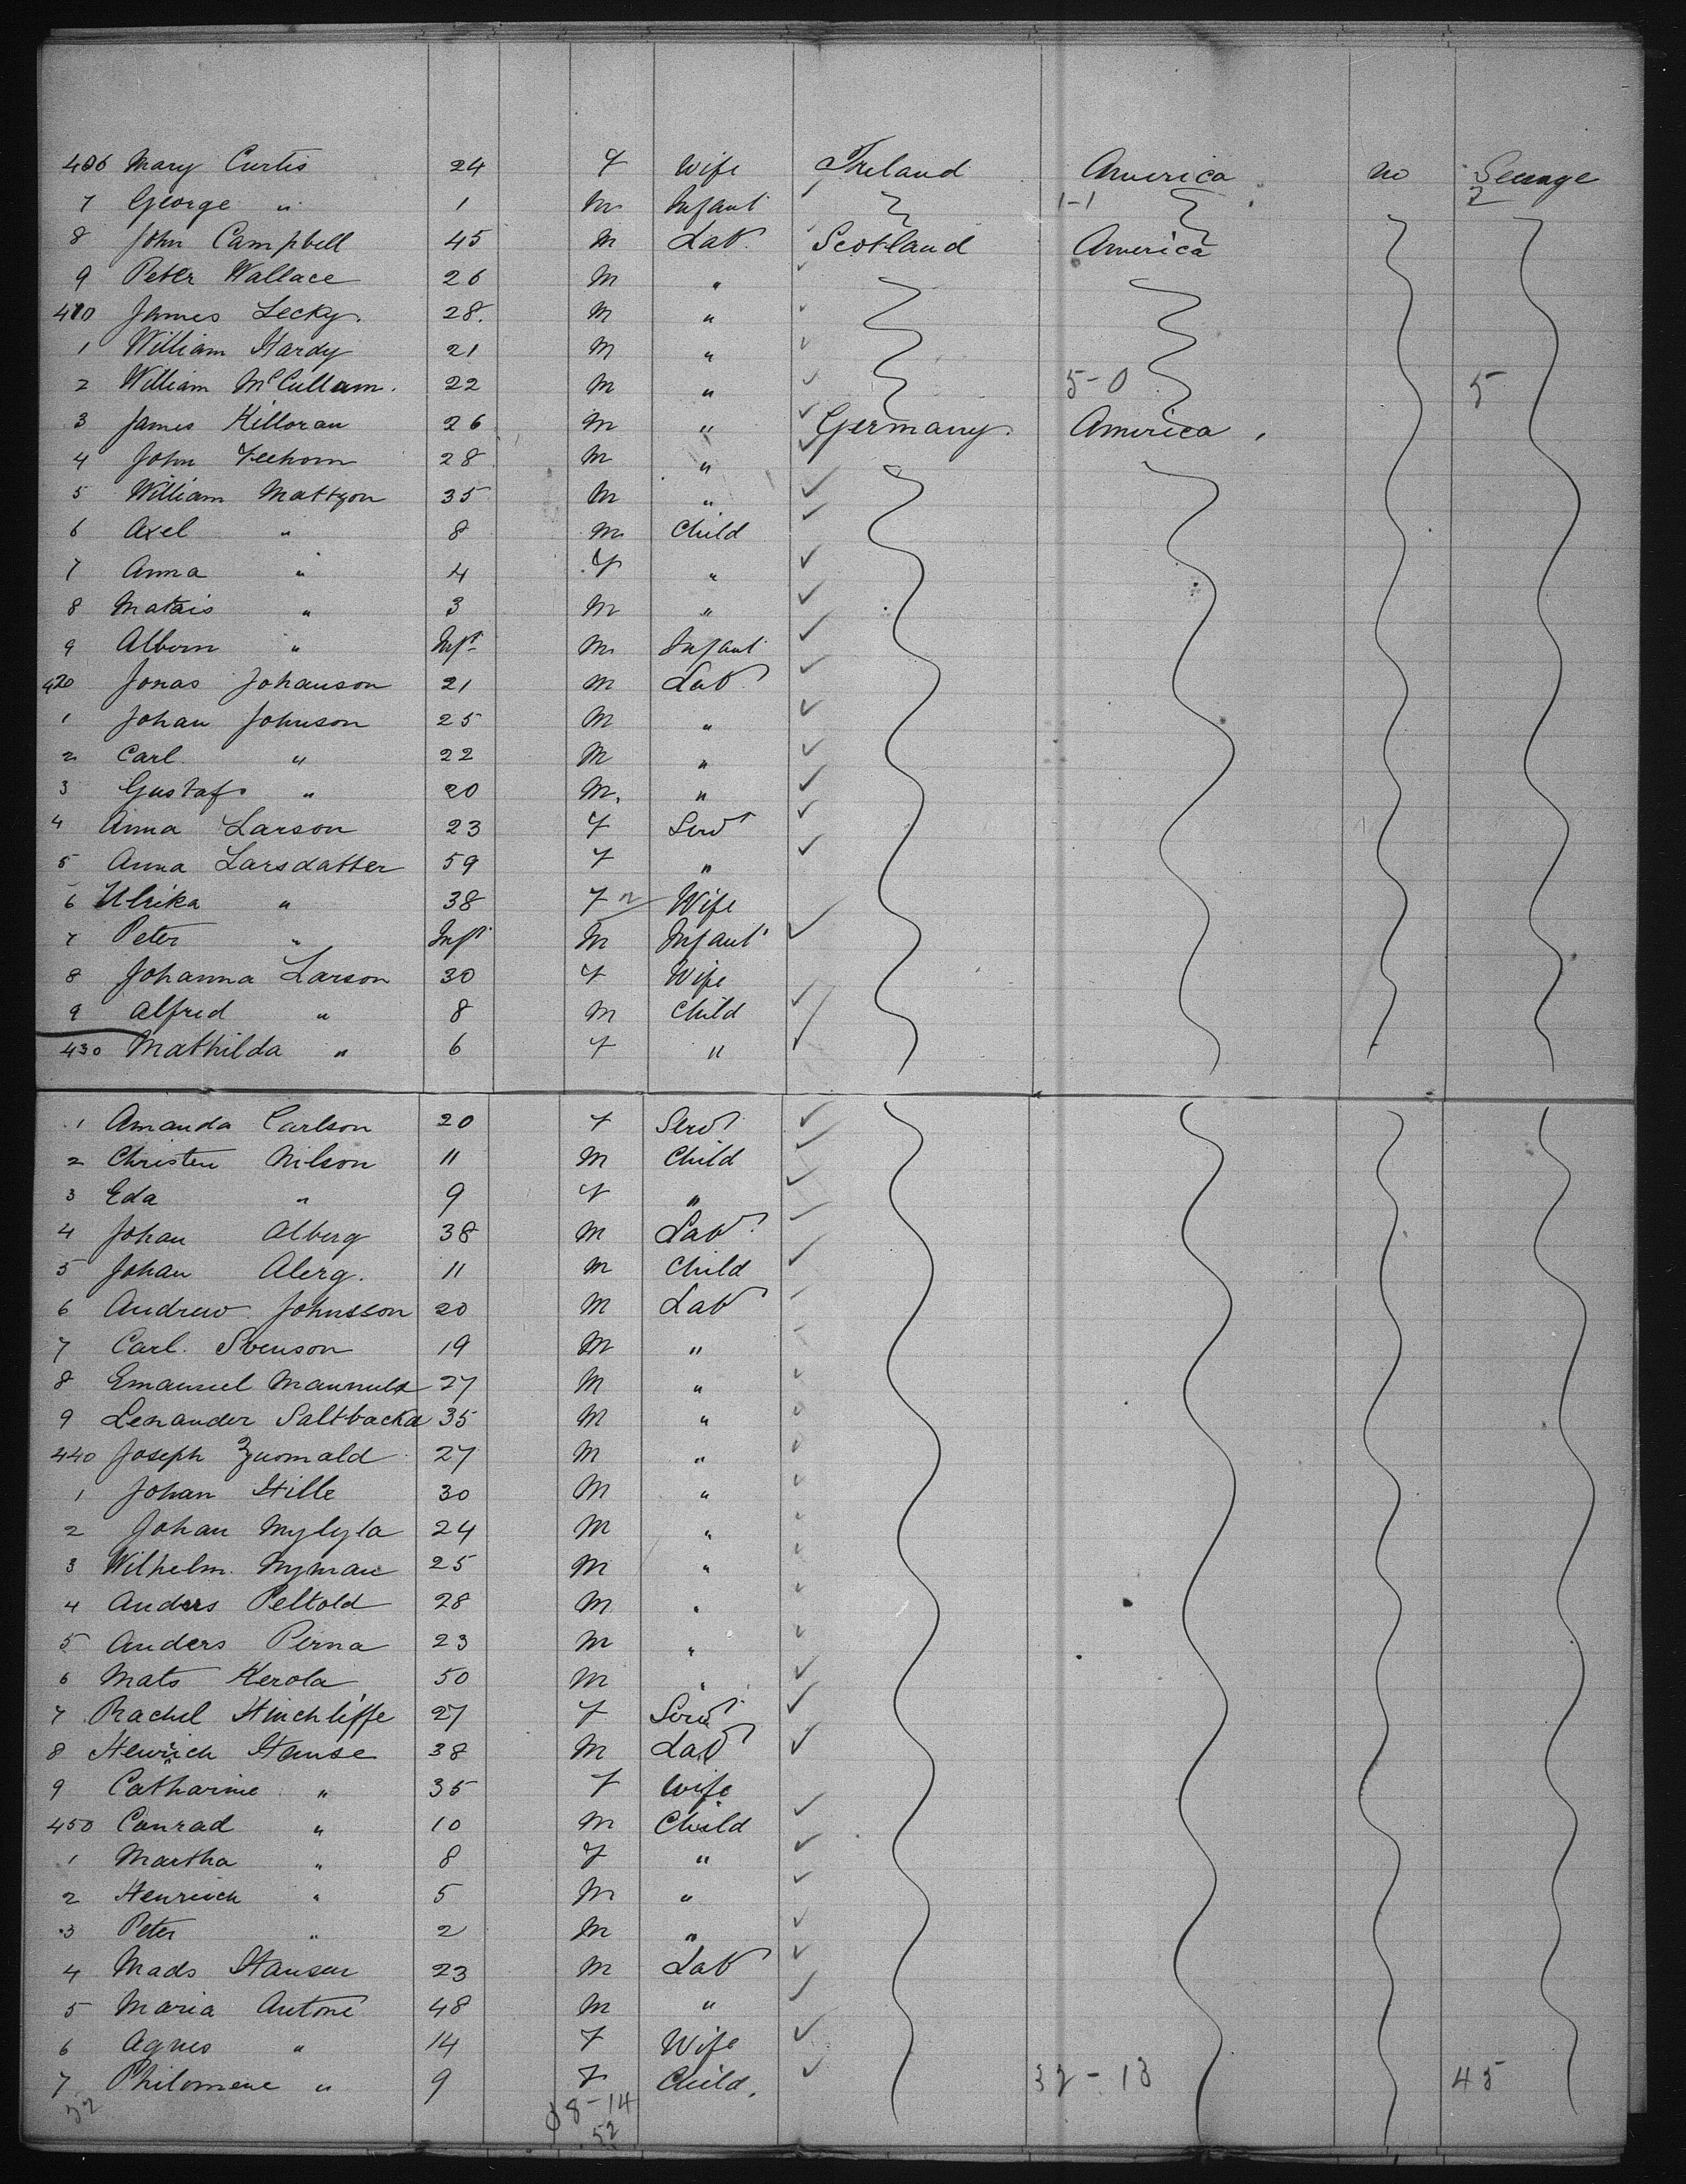 406 Mary Curtis 24 F Wife Ireland America no Steerage
7 George " 1 M Infant 1-1 2
8 John Campbell 45 M Lab. Scotland America
9 Peter Wallace 26 M "
410 James Lecky. 28. M "
1 William Hardy 21 M "
2 William McCullam. 22 M " 5-0 5
3 James Killoran 26 M " Germany. America.
4 John Feehorn 28 M "
5 William Mattyon 35 M "
6 Axel " 8 M. Child
7 Anna " 4 F "
8 Matais " 3 M "
9 Alborn " Inft M. Infant
420 Jonas Johanson 21 M Lab
1 Johan Johnson 25 M "
2 Carl " 22 M "
3 Gustaf " 20 M. "
4 Anna Larson 23 F Servt
5 Anna Larsdatter 59 F "
6 Ulrika " 38 F Wife
7 Peter " Inft M Infant
8 Johanna Larson 30 F Wife
9 Alfred " 8 M Child
430 Mathilda " 6 F "
1 Amanda Carlson 20 F Servt
2 Christen Nilson 11 M Child
3 Eda " 9 F "
4 Johan Alberg 38 M Lab
5 Johan Alerg. 11 M Child
6 Andrew Johnsson 20 M Lab
7 Carl. Svenson 19 M "
8 Emanuel 27 M "
9 Lenander Saltbacka 35 M "
440 Joseph 27 M "
1 Johan Hille 30 M "
2 Johan Mylyla 24 M "
3 Wilhelm. Nyman 25 M "
4 Anders Peltold 28 M "
5 Anders Perna 23 M "
6 Mats Kerola 50 M "
7 Rachel Hinchliffe 27 F Servt
8 Henrich Hanse 38 M Lab
9 Catharine " 35 F Wife
450 Conrad " 10 M Child
1 Martha " 8 F "
2 Henrich " 5 M "
3 Peter " 2 M "
4 Mads Hansen 23 M Lab
5 Maria Antone 48 M "
6 Agnes " 14 F Wife
7 Philomene " 9 F Child. 32-13 45
32 38-14
52